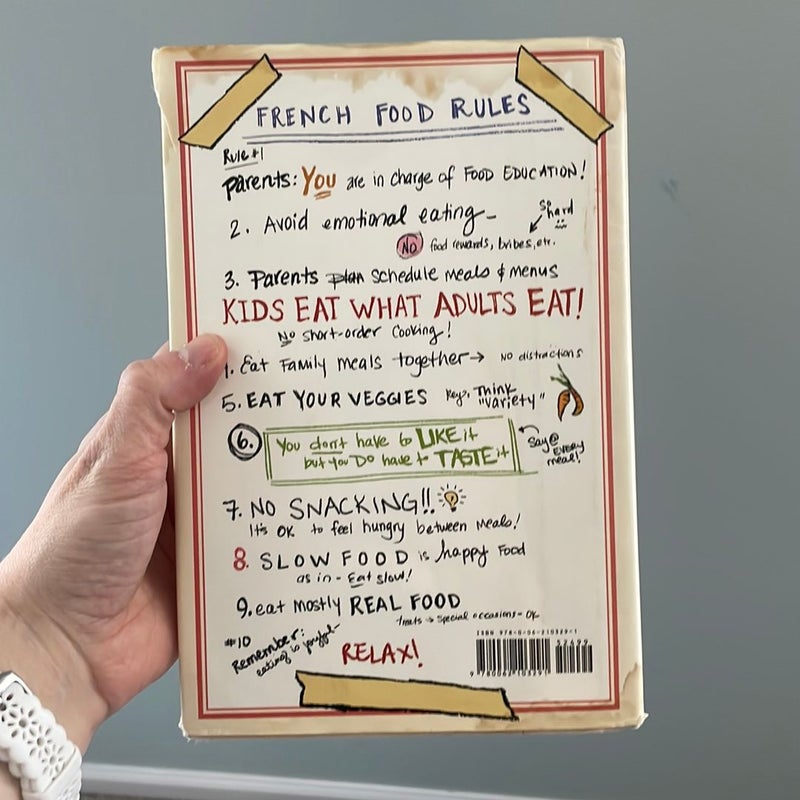 FRENCH FOOD RULES
Rule #1
Parents: YOU are in charge of FOOD EDUCATION!
2. Avoid emotional eating-
so hard
NO food rewards, bribes, etc.
3. Parents plan schedule meals & menus
KIDS EAT WHAT ADULTS EAT!
No short-order cooking!
4. Eat Family meals together → NO distractions
5. EAT YOUR VEGGIES Key: Think
"variety"
6. You don't have to LIKE it
but you DO have to TASTE it
Say @
EVERY
meal!
7. NO SNACKING!!
It's OK to feel hungry between meals!
8. SLOW FOOD is happy Food
as in - Eat slow!
9. eat mostly REAL FOOD
treats → special occasions - OK
#10
Remember:
eating is joyful-
RELAX!
ISBN 978-0-06-210329-1
52699
9 780062 103291